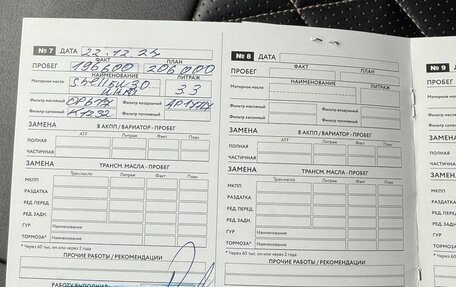 № 7 ДАТА 22.12.24
ФАКТ ПЛАН
ПРОБЕГ 196400 206000
НАИМЕНОВАНИЕ ЛИТРАЖ
Моторное масло 5W30 3.3
Фильтр масляный Фильтр воздушный
Фильтр салонный K1232 Фильтр топливный
ЗАМЕНА В АКПП / ВАРИАТОР - ПРОБЕГ
ATF Литраж Факт План
ПОЛНАЯ
ЧАСТИЧНАЯ
ЗАМЕНА ТРАНСМ. МАСЛА - ПРОБЕГ
Транс.масло Литраж Факт План
МКПП
РАЗДАТКА
РЕД. ПЕРЕД.
РЕД. ЗАДН.
ГУР Наименование
ТОРМОЗА* Наименование
* Через 60 тыс. км или через 2 года
ПРОЧИЕ РАБОТЫ / РЕКОМЕНДАЦИИ
РАБОТУ ВЫПОЛНИЛ
№ 8 ДАТА
ФАКТ ПЛАН
ПРОБЕГ
НАИМЕНОВАНИЕ ЛИТРАЖ
Моторное масло
Фильтр масляный Фильтр воздушный
Фильтр салонный Фильтр топливный
ЗАМЕНА В АКПП / ВАРИАТОР - ПРОБЕГ
ATF Литраж Факт План
ПОЛНАЯ
ЧАСТИЧНАЯ
ЗАМЕНА ТРАНСМ. МАСЛА - ПРОБЕГ
Транс.масло Литраж Факт План
МКПП
РАЗДАТКА
РЕД. ПЕРЕД.
РЕД. ЗАДН.
ГУР Наименование
ТОРМОЗА* Наименование
* Через 60 тыс. км или через 2 года
ПРОЧИЕ РАБОТЫ / РЕКОМЕНДАЦИИ
№ 9
ПРОБЕГ
Моторное масло
ЗАМЕНА
ПОЛНАЯ
ЧАСТИЧНАЯ
ЗАМЕНА
МКПП
РАЗДАТКА